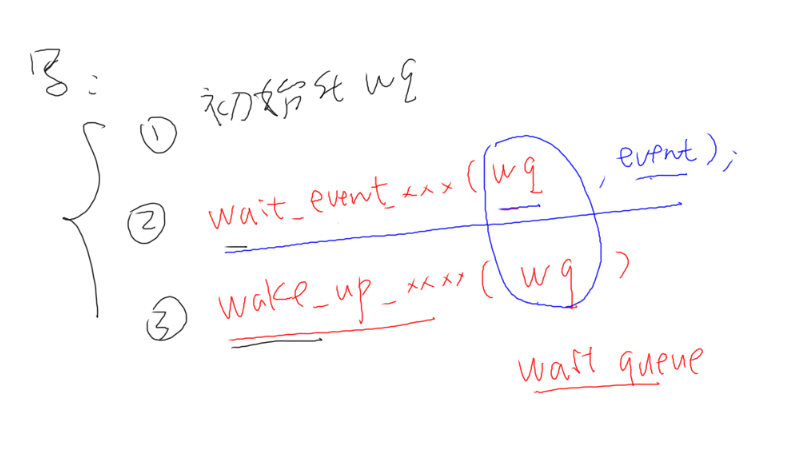 写:
① 初始化 wq
② wait_event_xxx(wq, event);
③ wake_up_xxxx(wq)
wait queue